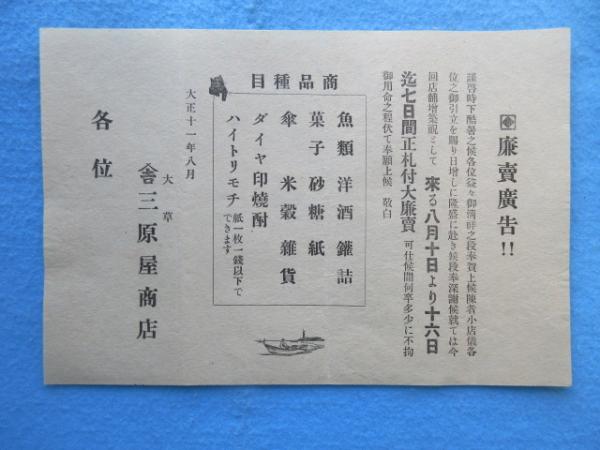 廉賣廣告!!
謹啓時下酷暑之候各位益々御清祥之段奉賀上候陳者小店儀各
位之御引立を賜り日增しに隆盛に赴き候段奉深謝候就ては今
回店舗增築祝として 來る八月十日より十六日
迄七日間正札付大廉賣 可仕候間何卒多少に不拘
御用命之程伏て奉願上候 敬白
商品種目
魚類 洋酒 鑵詰
菓子 砂糖 紙
傘 米穀 雜貨
ダイヤ印燒酎
ハイトリモチ 紙一枚一錢以下で
できます
大正十一年八月
大草
三原屋商店
各位